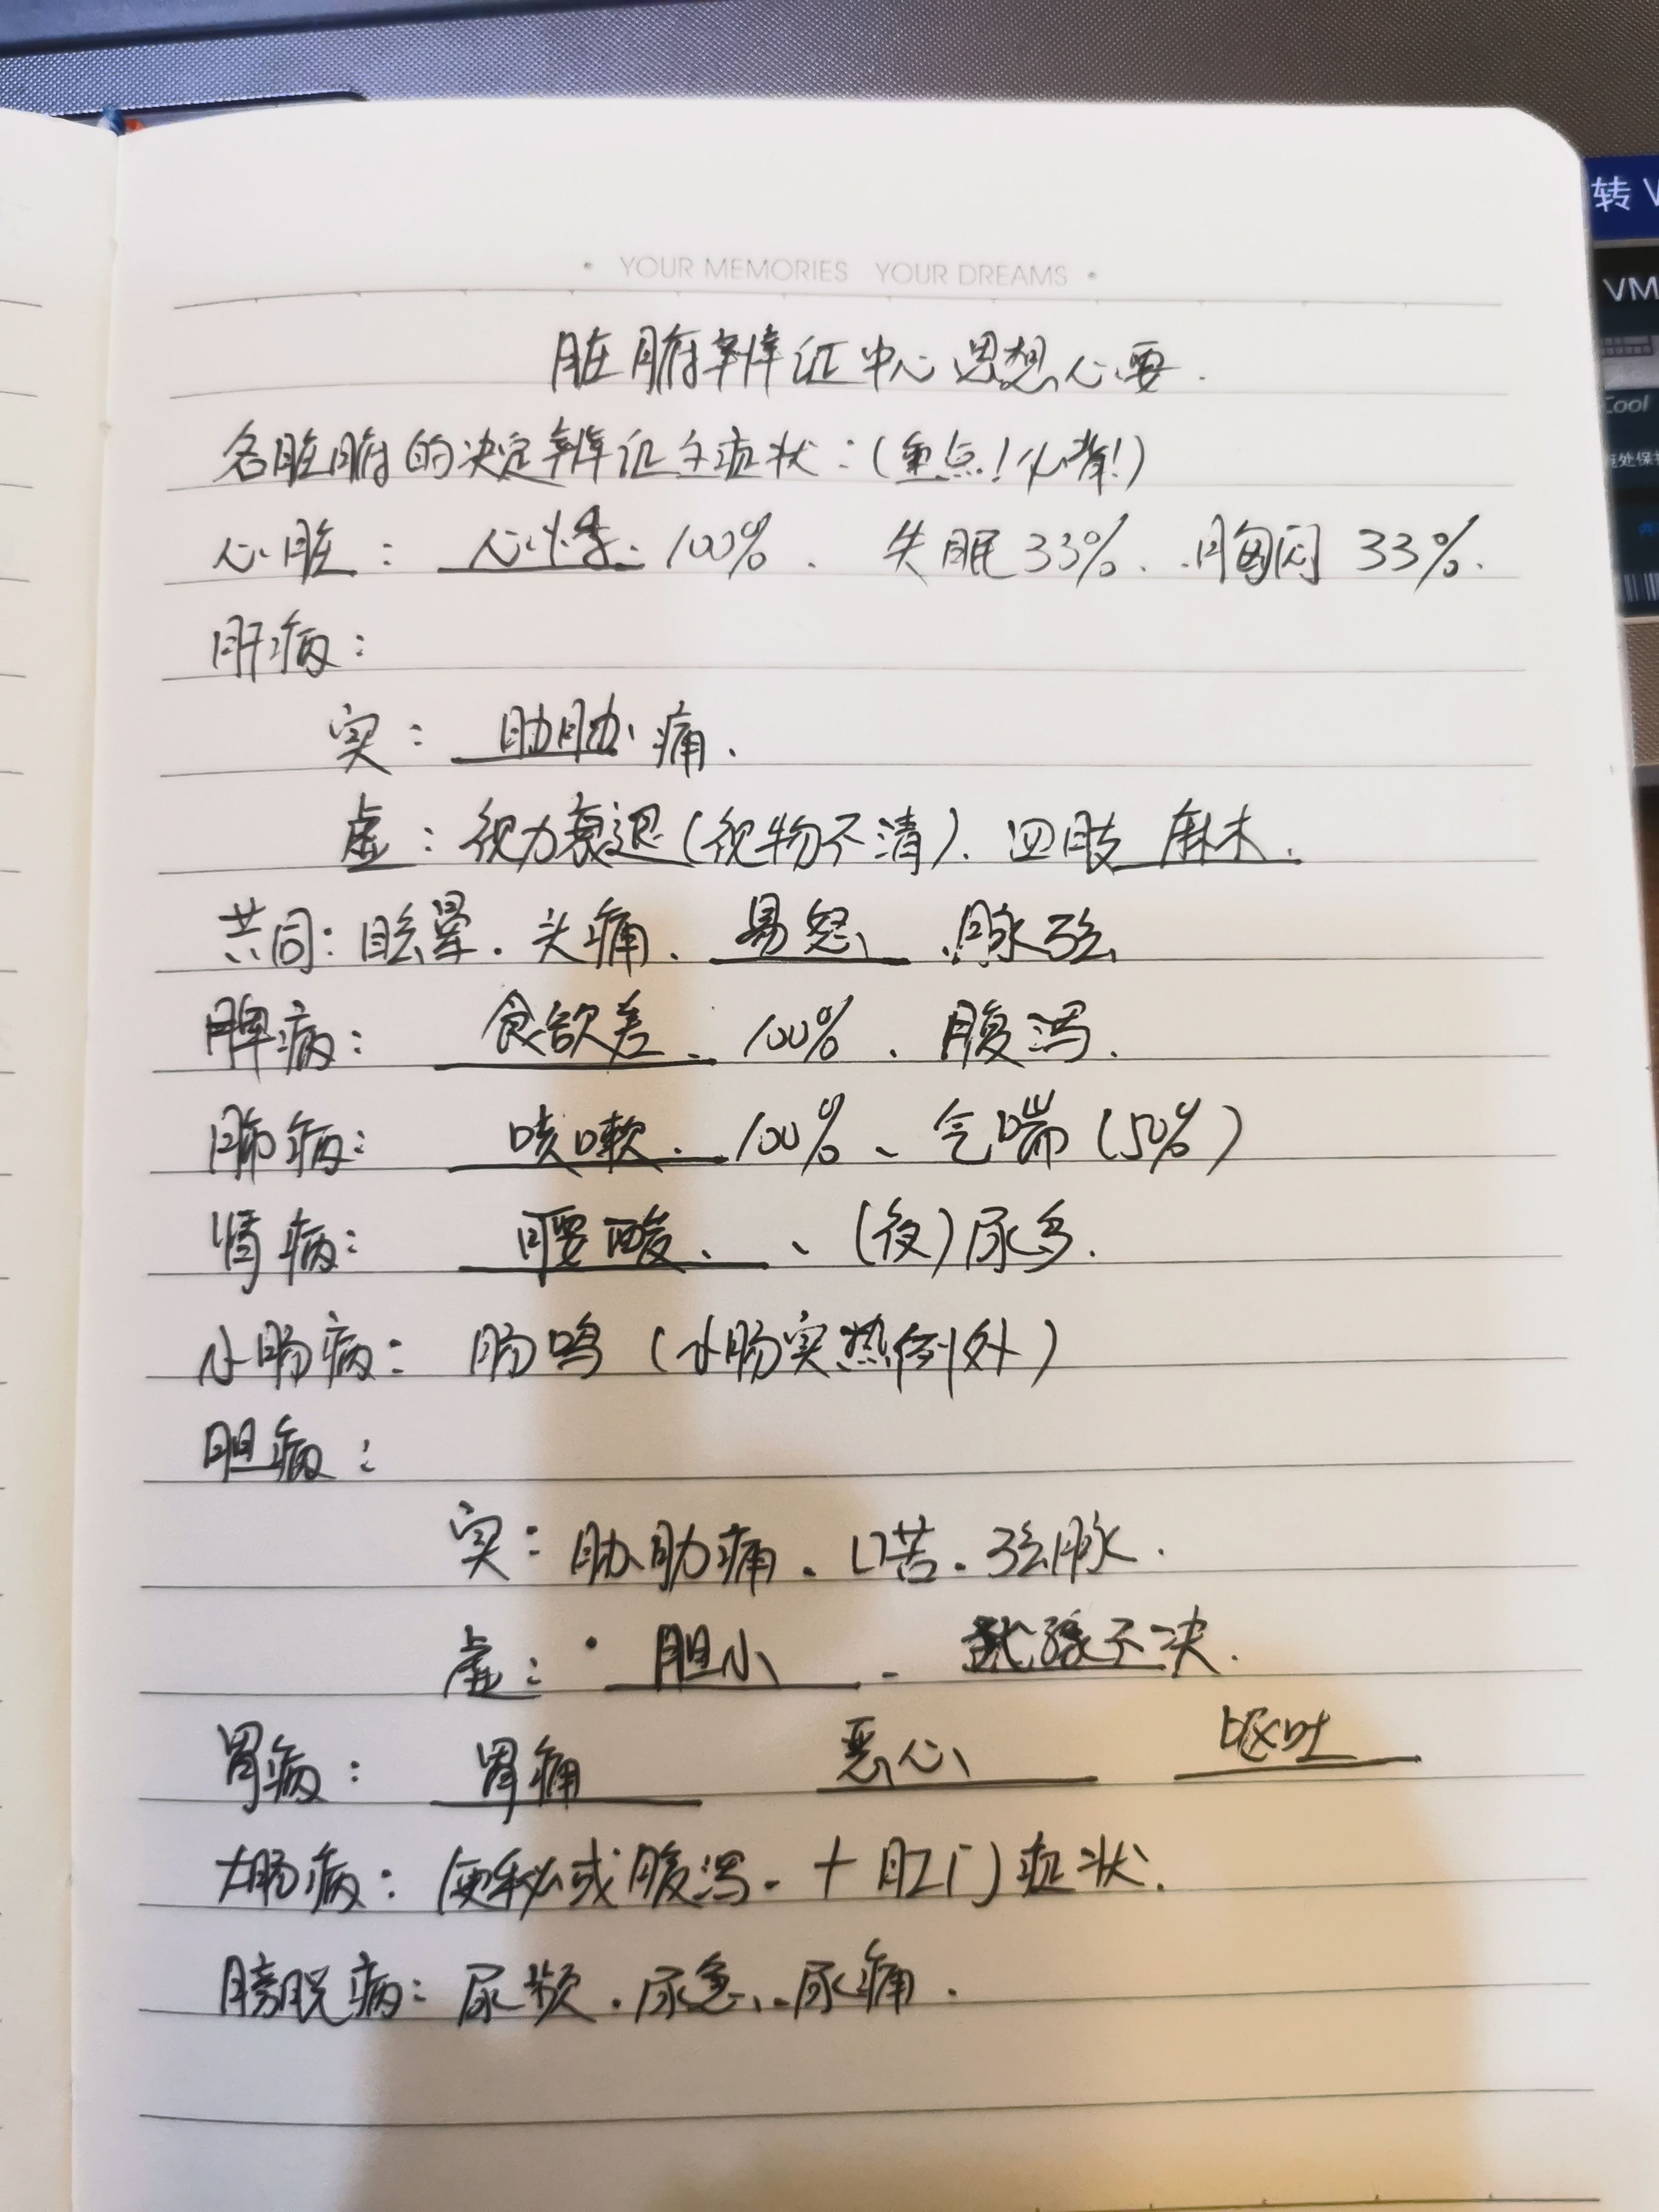 • YOUR MEMORIES YOUR DREAMS •
脏腑辨证中心思想心要.
各脏腑的决定辨证主症状：(重点！必背！)
心脏： 心悸、100%、失眠33%、胸闷33%.
肝病：
实： 肋胁痛.
虚：视力衰退(视物不清)、四肢麻木.
共同：眩晕.头痛、易怒、脉弦
脾病： 食欲差、100%、腹泻.
肺病： 咳嗽、100%、气喘(50%)
肾病： 腰酸、、(夜)尿多.
小肠病：肠鸣(小肠实热例外)
胆病：
实：胁肋痛.口苦.弦脉.
虚： 胆小 、犹豫不决.
胃病： 胃痛 恶心 呕吐
大肠病：便秘或腹泻.＋肛门症状.
膀胱病：尿频.尿急、尿痛.
转 V
VM
Cool